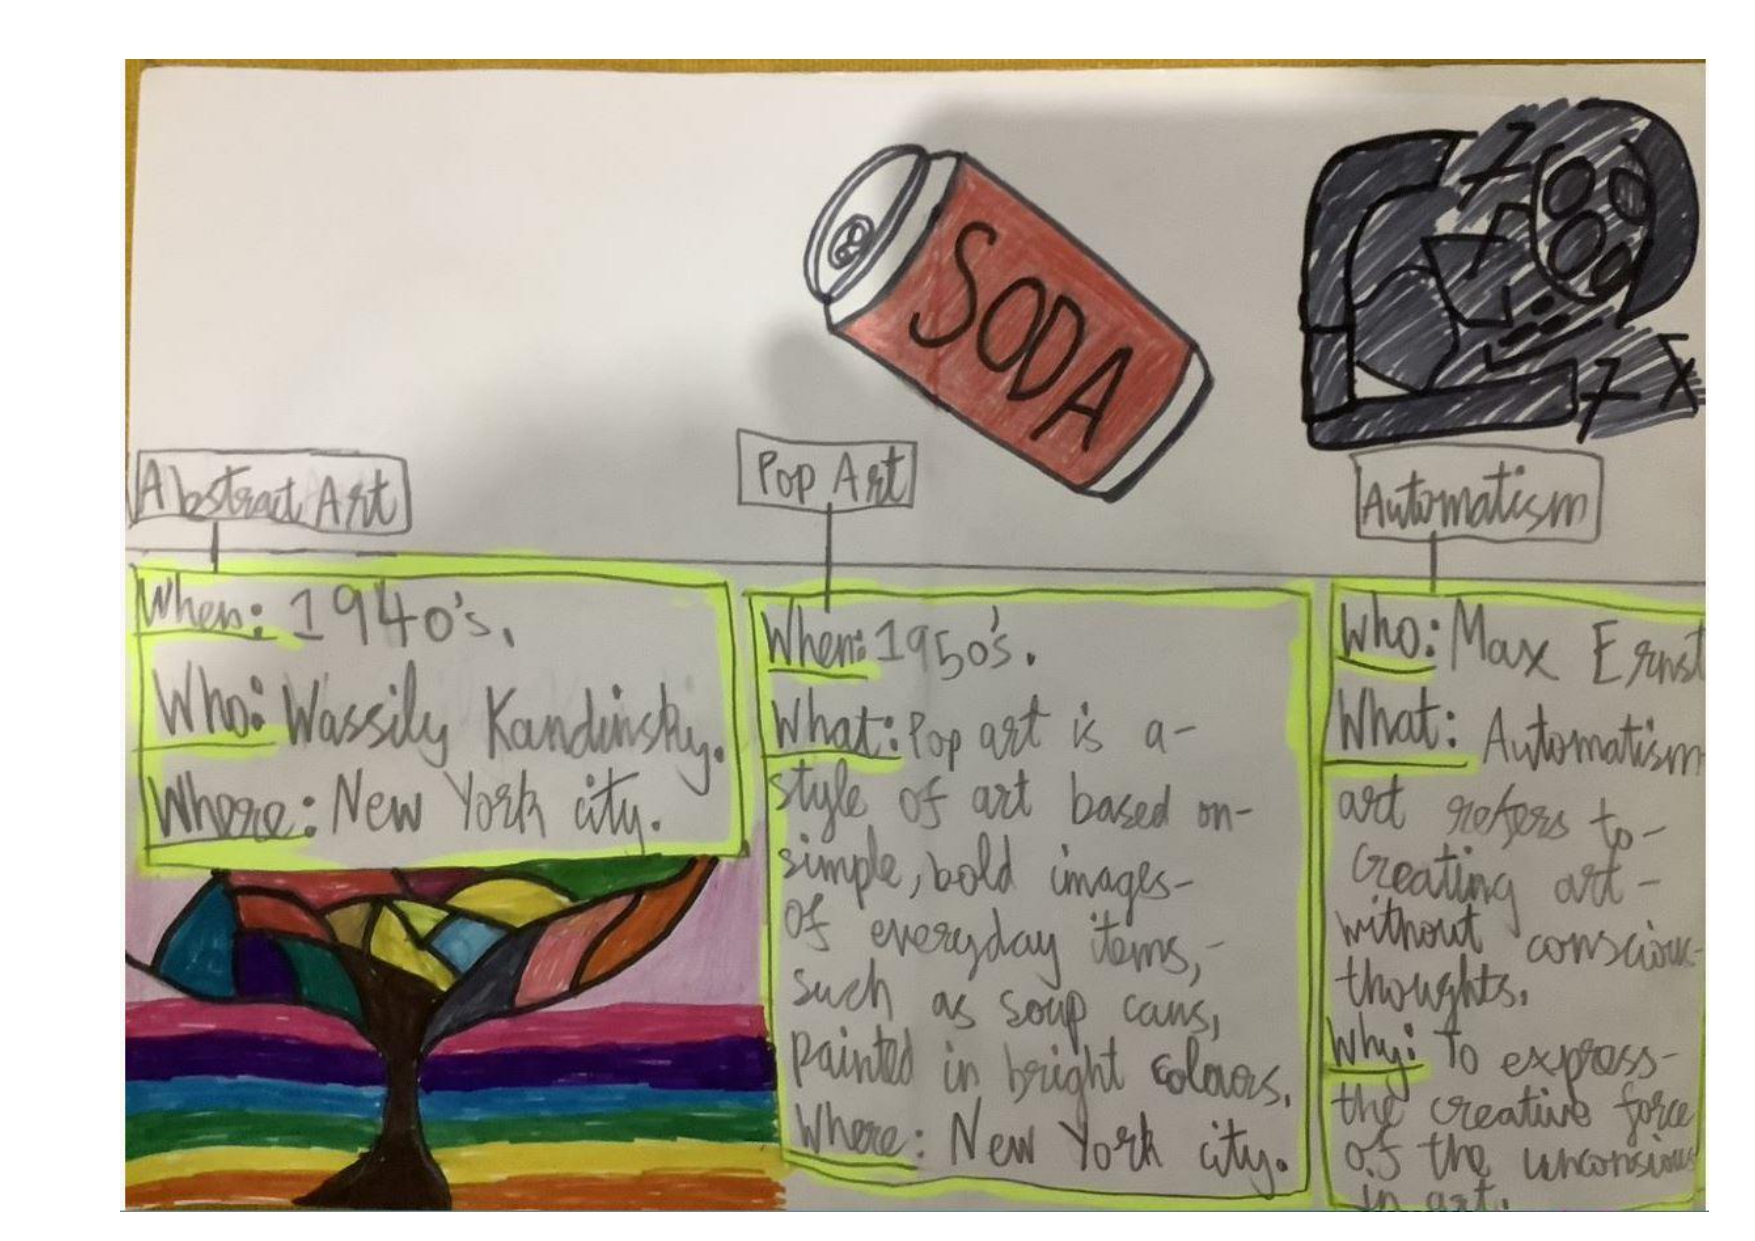 SODA
Abstract Art
When: 1940's.
Who: Wassily Kandinsky.
Where: New York city.
Pop Art
When: 1950's.
What: Pop art is a-
style of art based on-
simple, bold images-
of everyday items,-
such as soup cans,
painted in bright colours.
Where: New York city.
Automatism
Who: Max Ernst
What: Automatism
art refers to-
creating art-
without conscious-
thoughts.
Why: To express-
the creative force
of the unconscious
in art.